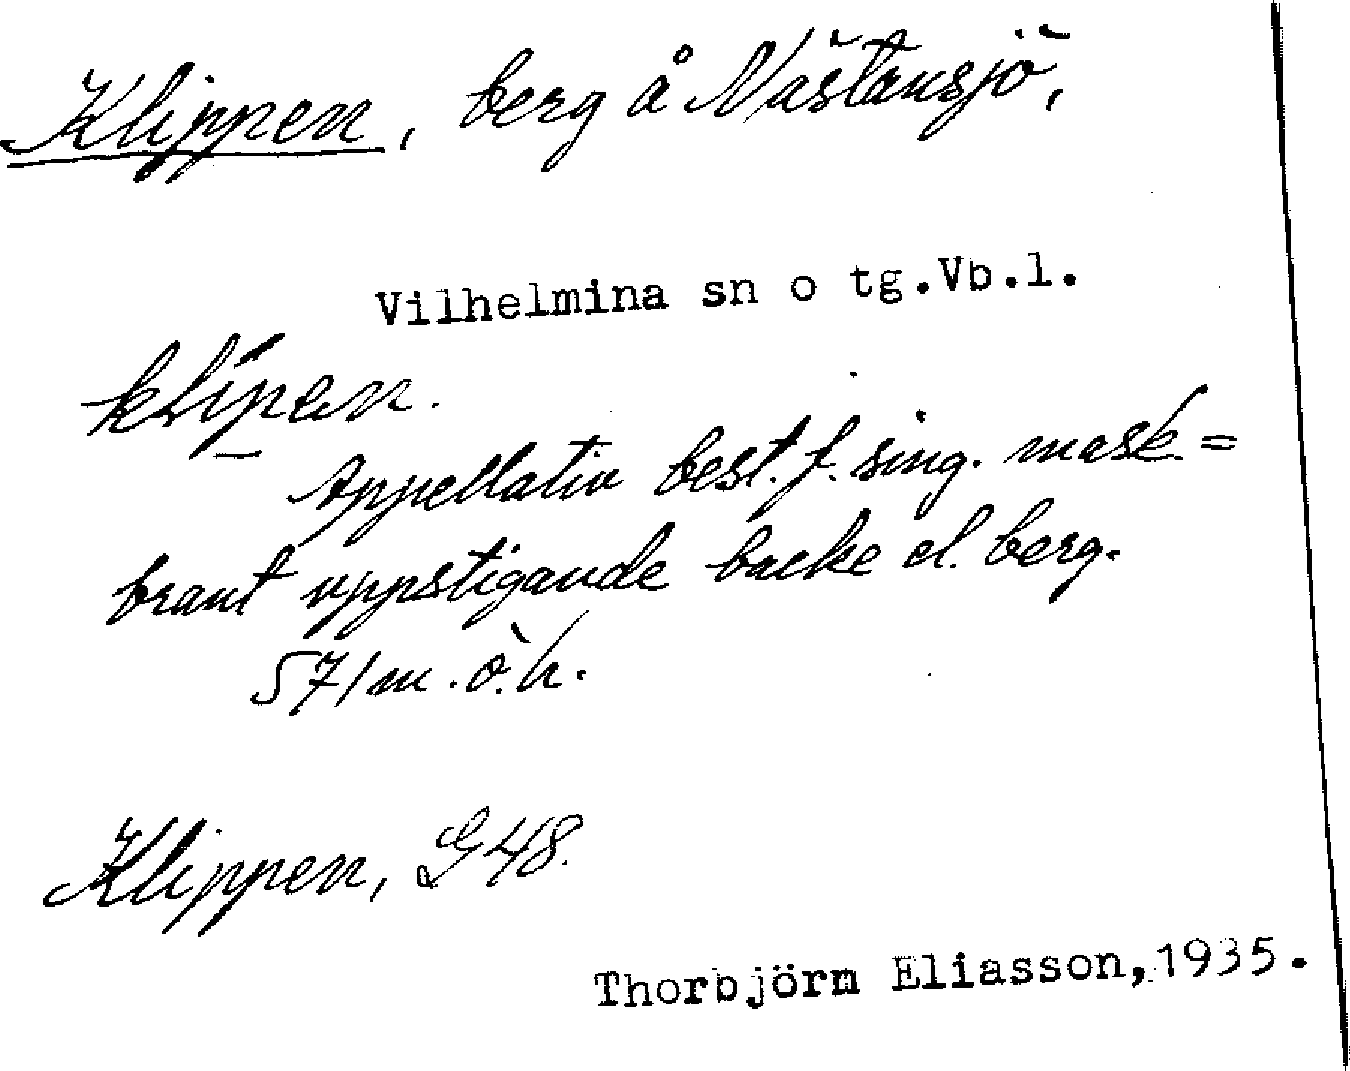 Klippen, berg å Nästansjö,
Vilhelmina sn o tg.Vb.l.
klípen.
Appellativ best. f. sing. mask. =
brant uppstigande backe el. berg.
571 m. ö. h.
Klippen, G48.
Thorbjörm Eliasson,1935.